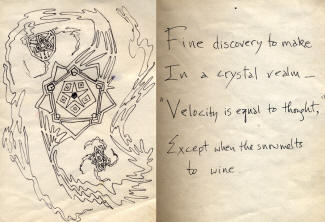 Fine discovery to make
In a crystal realm —
"Velocity is equal to thought,"
Except when the snow melts
to wine